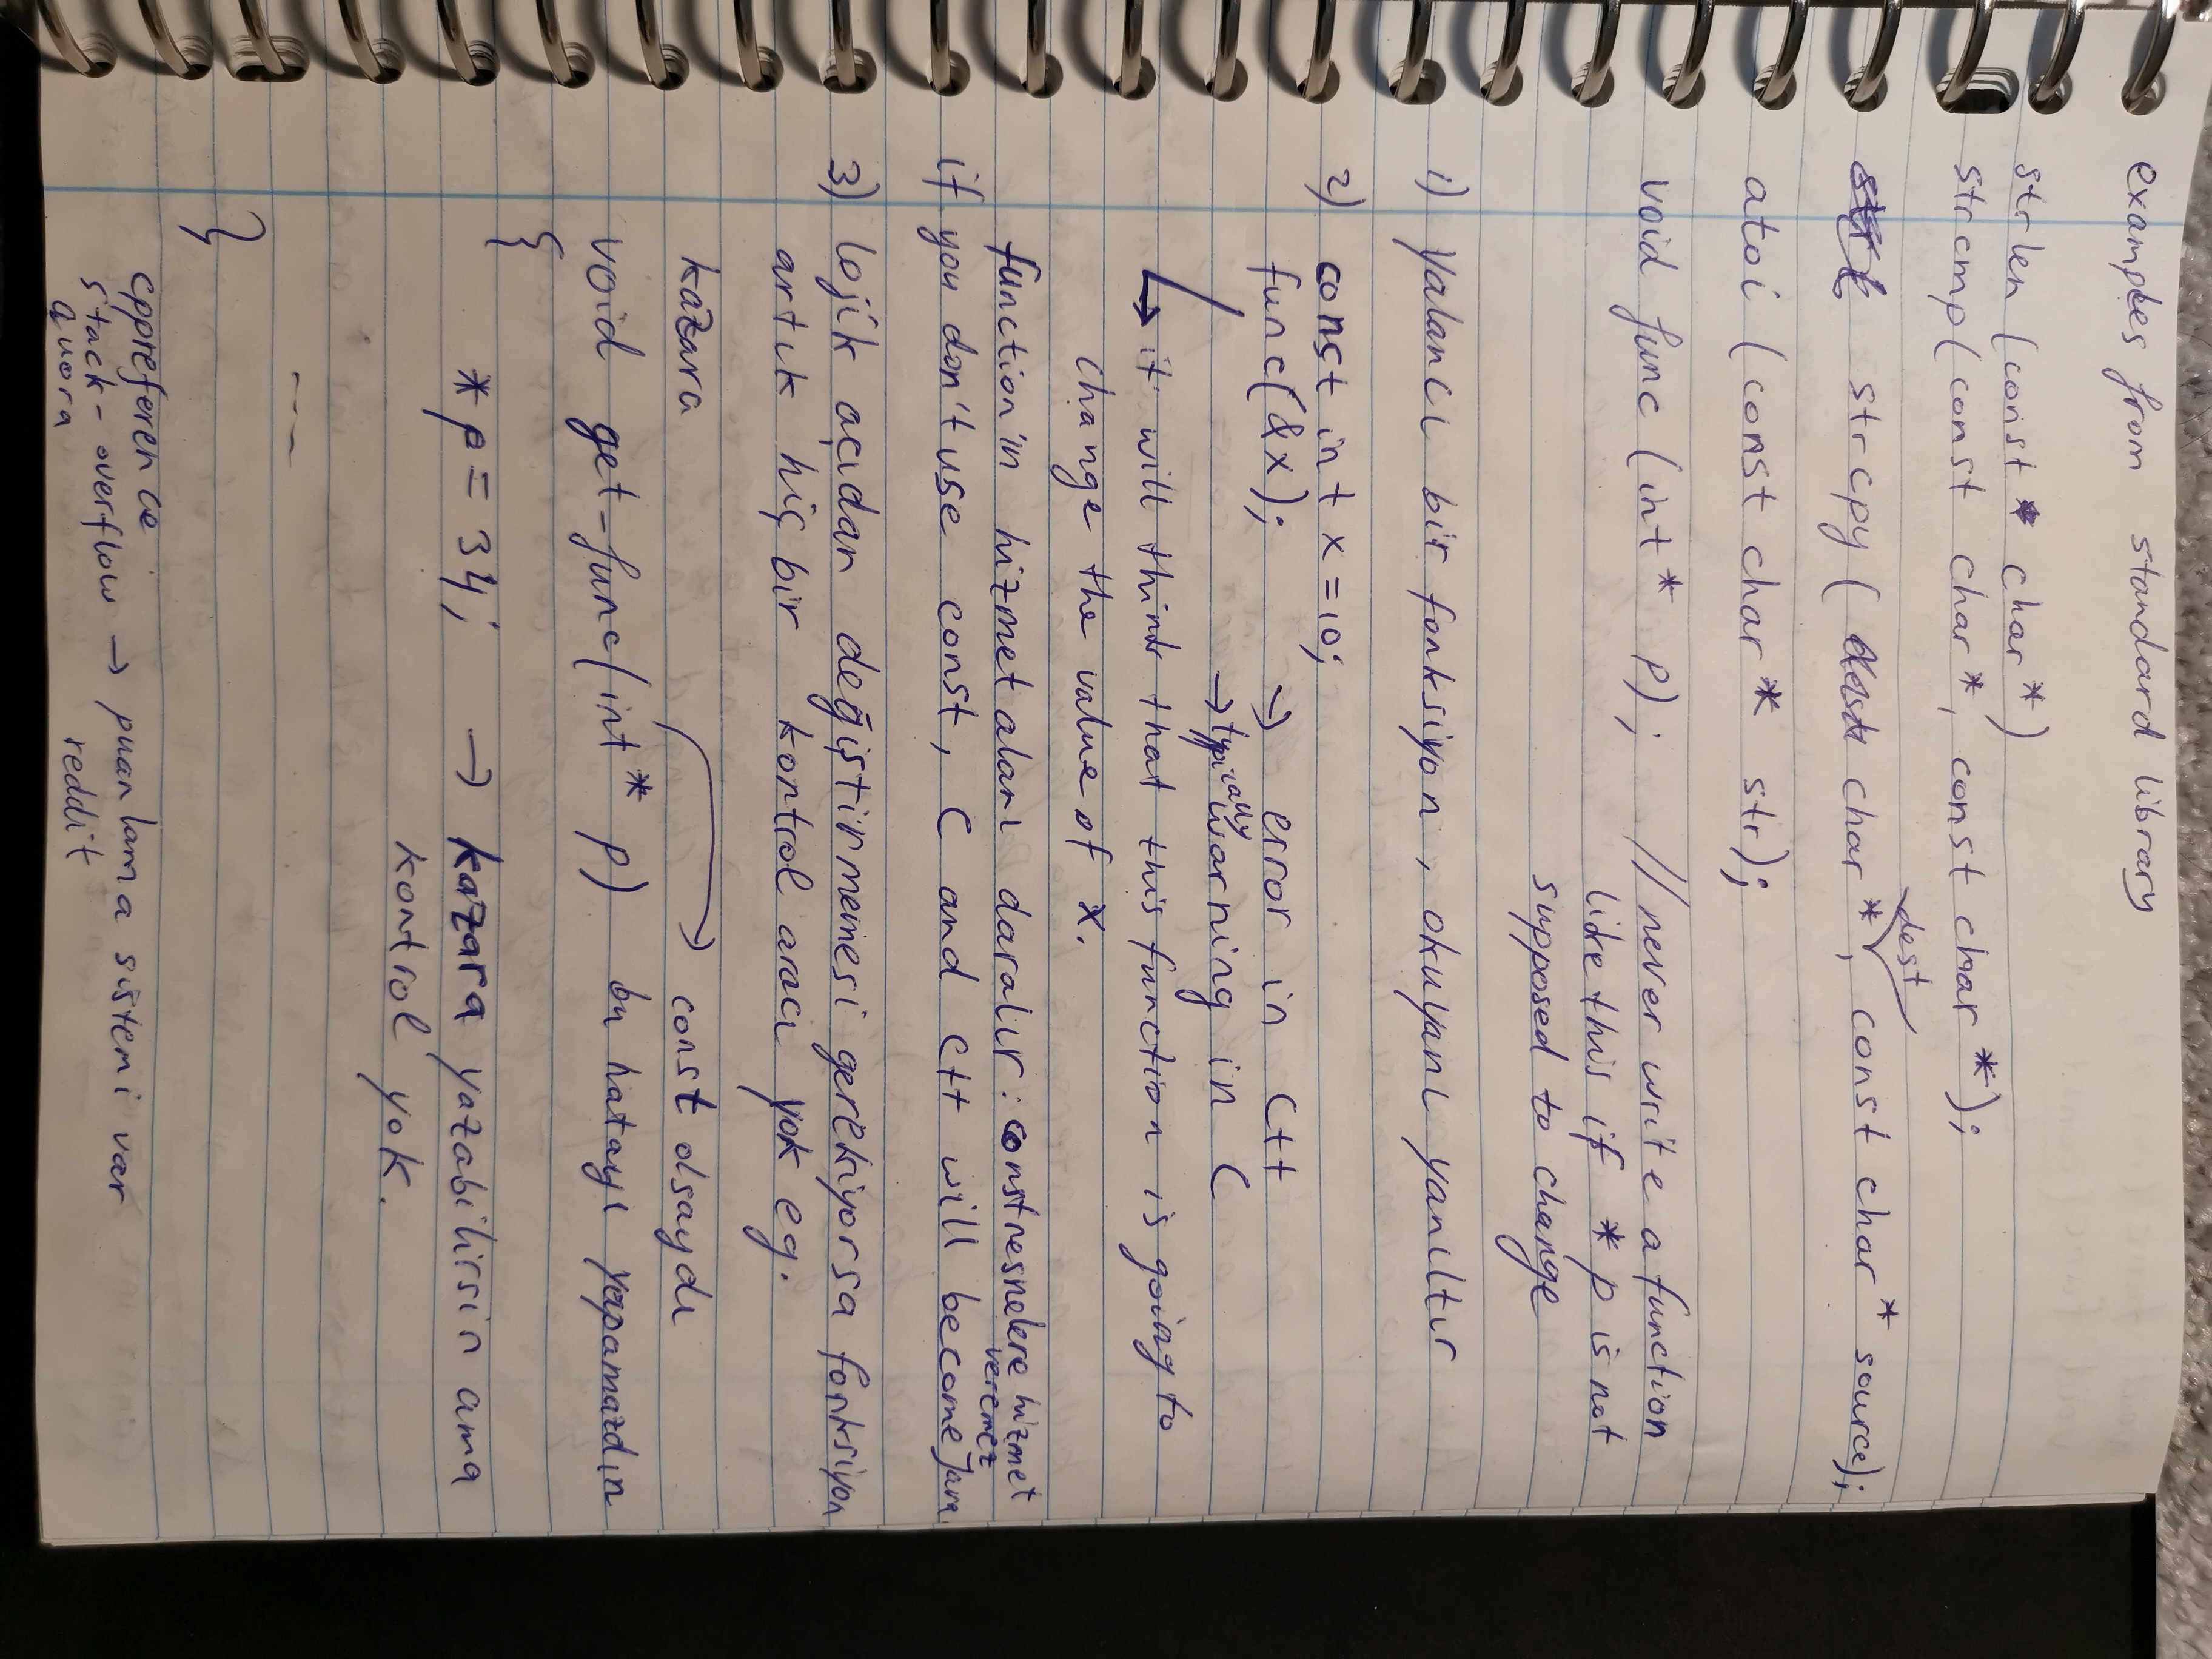 examples from standard library
strlen (const char*)
strcmp(const char*, const char*);
dest
strcpy ( char*, const char* source);
atoi (const char* str);
void func (int* p); //never write a function
like this if *p is not
supposed to change
1) yalancı bir fonksiyon, okuyanı yanıltır
2) const int x=10;
func(&x); → error in C++
→ typically warning in C
↳ it will think that this function is going to
change the value of x.
function'ın hizmet alanı daralır: const nesnelere hizmet
veremez
if you don't use const, C and C++ will become Java
3) lojik açıdan değiştirmemesi gerekiyorsa fonksiyon
artık hiç bir kontrol aracı yok eg.
kazara → const olsaydı
void get-func(int* p) bu hatayı yapamazdın
{
*p = 34; → kazara yazabilirsin ama
kontrol yok.
----
}
cppreference
stack-overflow → puanlama sistemi var
quora reddit